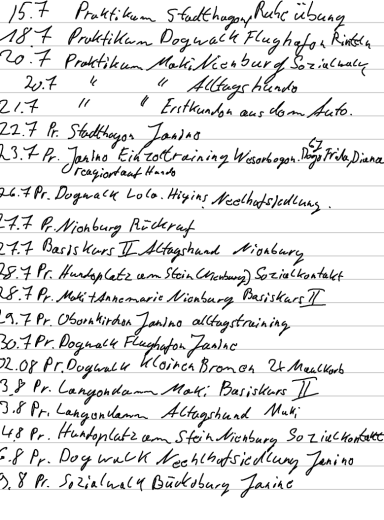 15.7 Praktikum Stadthagen, Ruhe übung
18.7 Praktikum Dogwalk Flughafen Rinteln
20.7 Praktikum Maki Nienburg Sozialwalk
20.7 " " Alltagshunde
21.7 " " Erstkunden aus dem Auto.
22.7 Pr. Stadthagen Janine
23.7 Pr. Janine Einzeltraining Weserbogen. Frida, Diana
reagiert auf Hunde
26.7 Pr. Dogwalk Lola. Higins Neelhofsiedlung.
27.7 Pr. Nienburg Rückruf
27.7 Basiskurs II Altagshund Nienburg
28.7 Pr. Hundeplatz am Stein (Nienburg) Sozialkontakt
28.7 Pr. Maki + Annemarie Nienburg Basiskurs II
29.7 Pr. Obernkirchen Janine alltagstraining
30.7 Pr. Dogwalk Flughafen Janine
02.08 Pr. Dogwalk Kleinen Bremen Maulkorb
3.8 Pr. Langendamm Maki Basiskurs II
3.8 Pr. Langendamm Altagshund Maki
4.8 Pr. Hundeplatz am Stein Nienburg Sozialkontakt
6.8 Pr. Dogwalk Neehlhofsiedlung Janine
9.8 Pr. Sozialwalk Bückeburg Janine